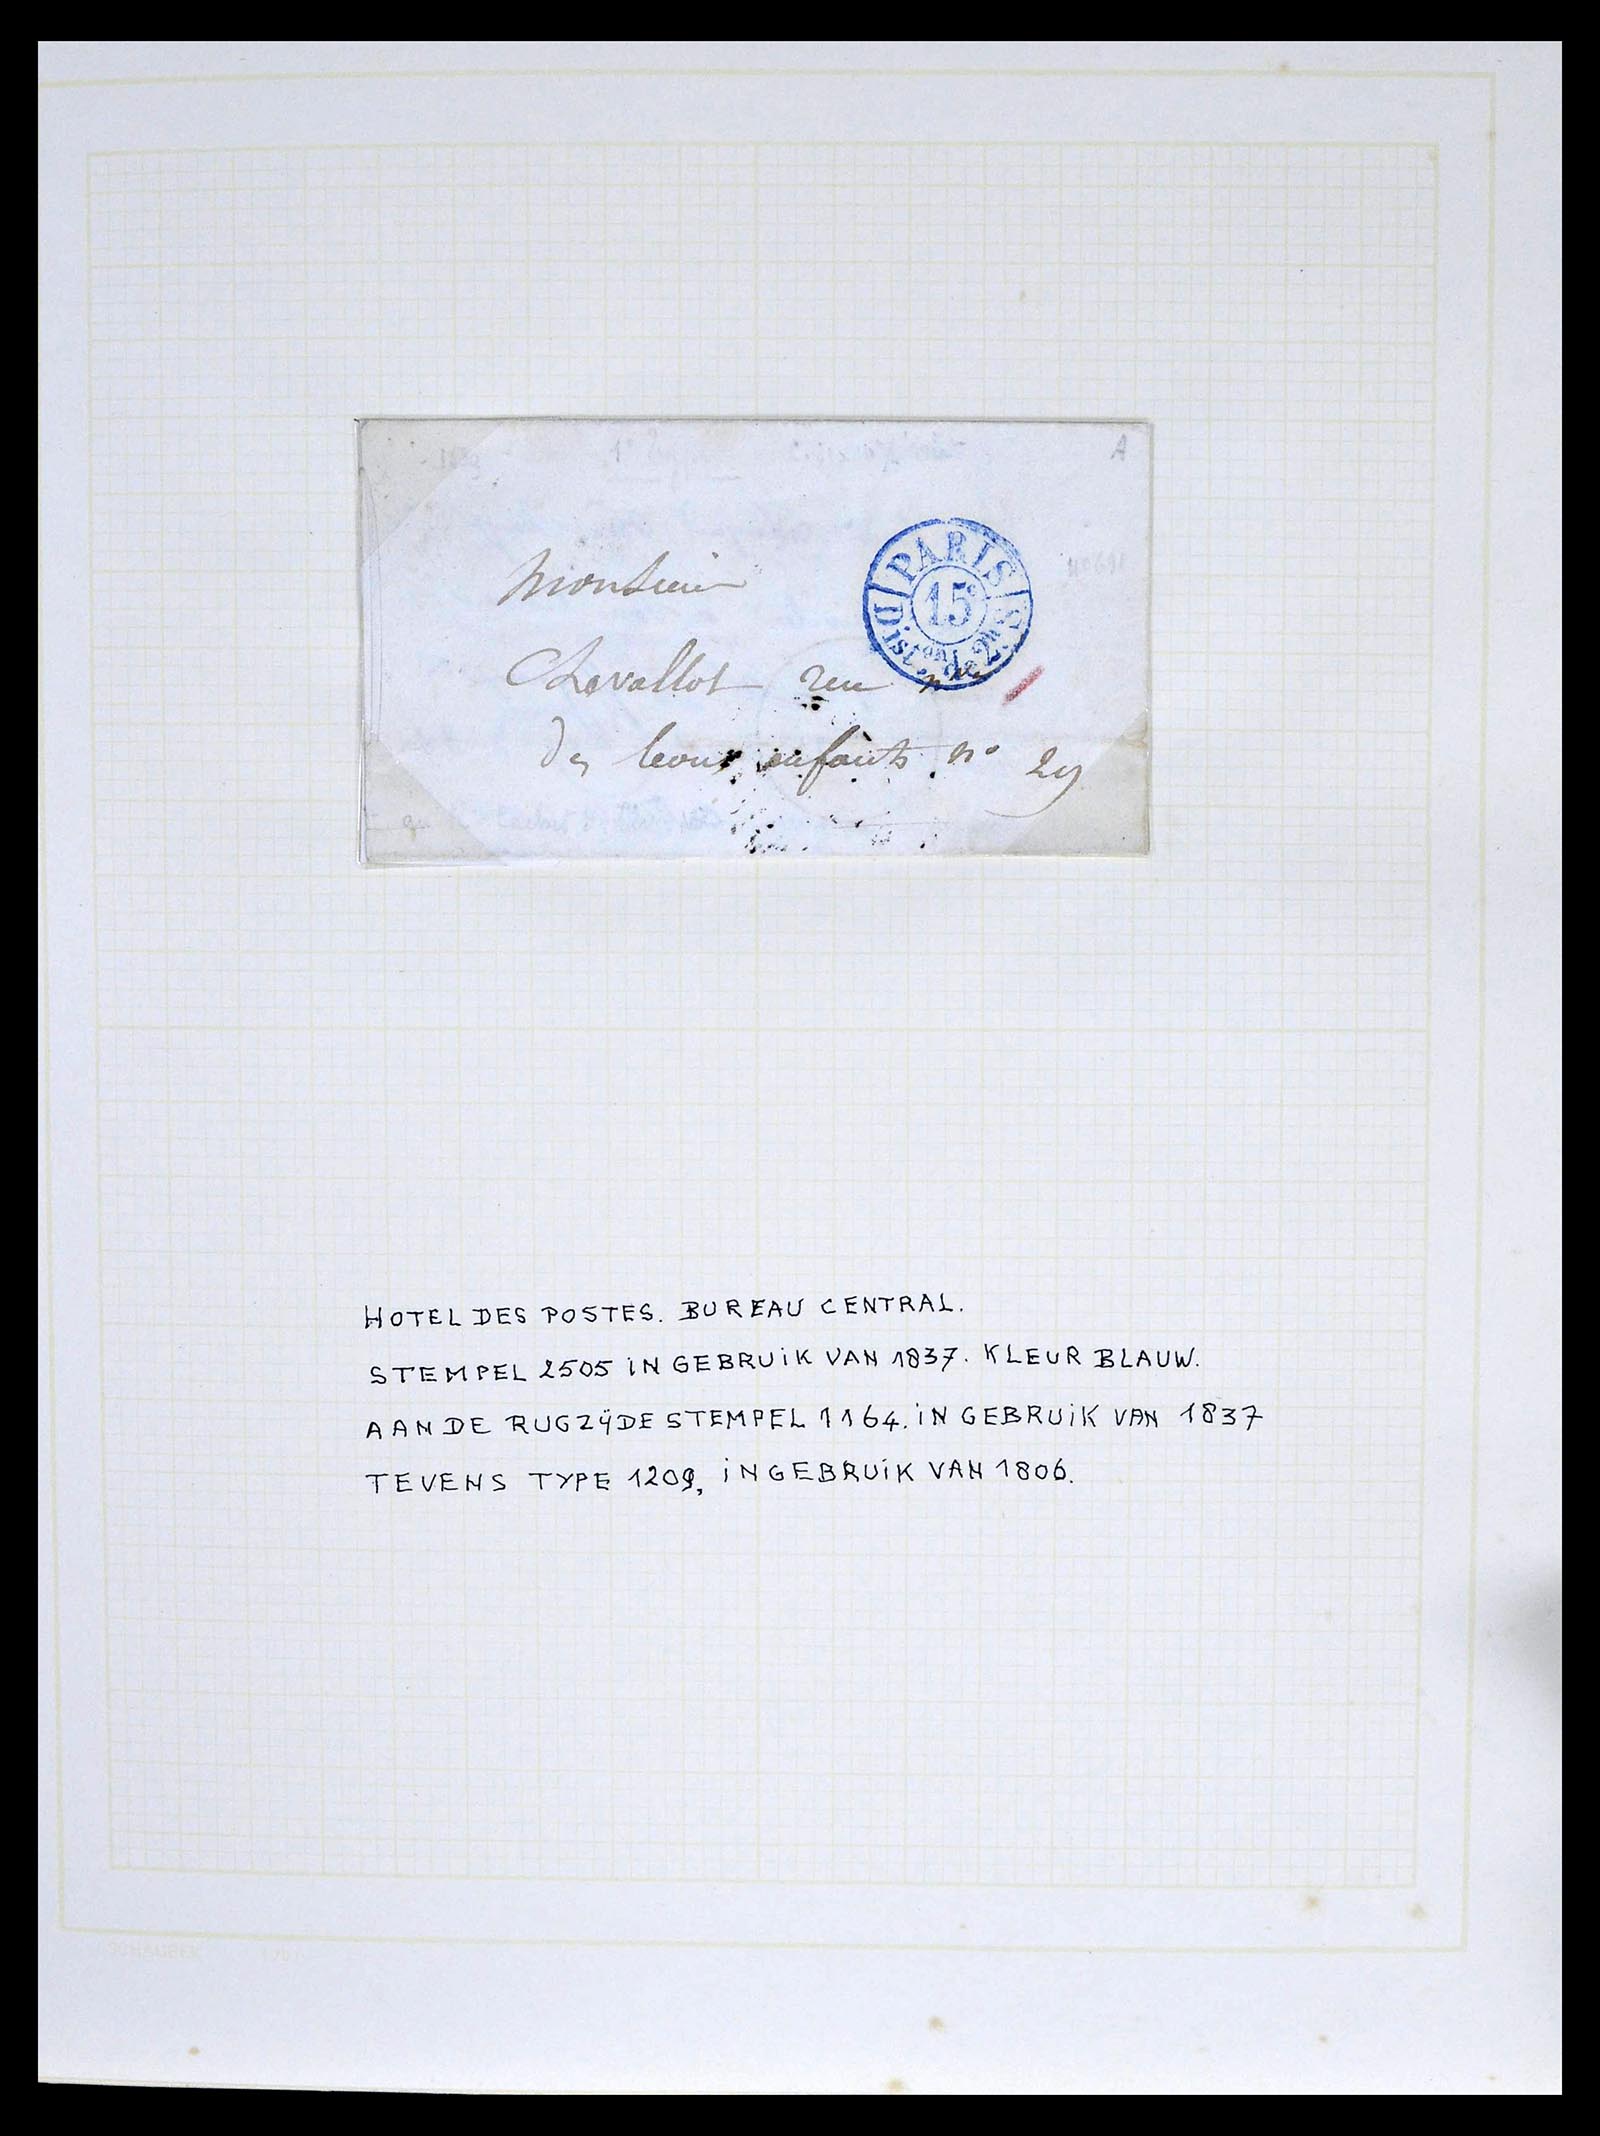 A
PARIS
15
Dist.on de 2h. S.
Monsieur
Chevallot rue nve
des bons enfants no 29
HOTEL DES POSTES. BUREAU CENTRAL.
STEMPEL 2505 IN GEBRUIK VAN 1837. KLEUR BLAUW.
AAN DE RUGZŸDE STEMPEL 1164. IN GEBRUIK VAN 1837
TEVENS TYPE 1209, IN GEBRUIK VAN 1806.
SCHAUBEK